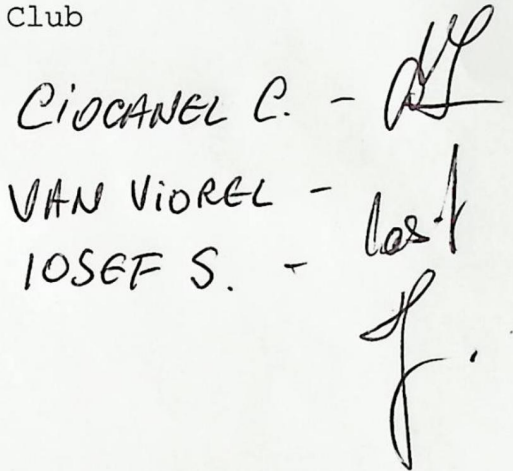 Club
CiOCANEL C. -
VAN ViOREL -
IOSEF S. -